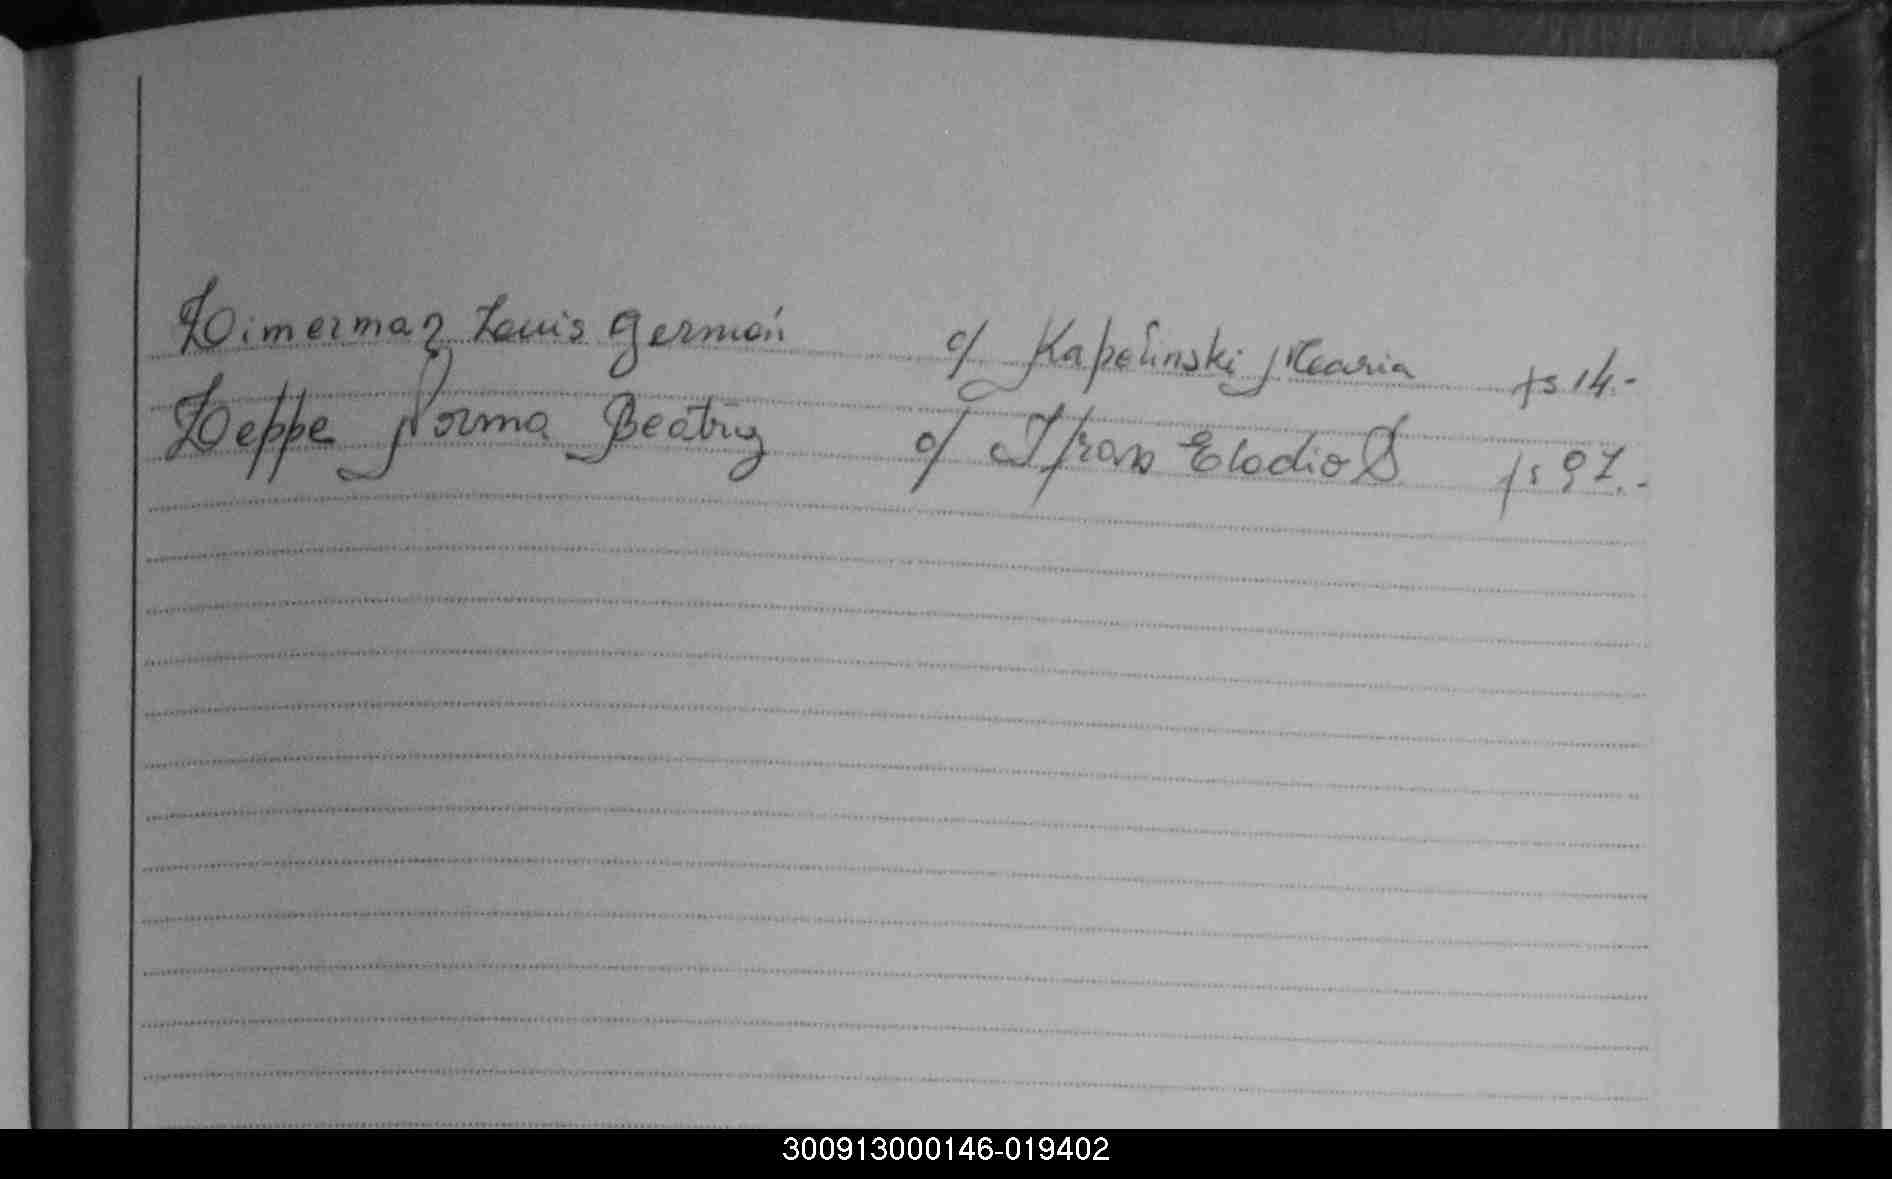 Zimerman Louis Germán c/ Kapelinski Maria fs 14.-
Zeppe Norma Beatriz c/ Ifran Eladio S fs 97.-
300913000146-019402